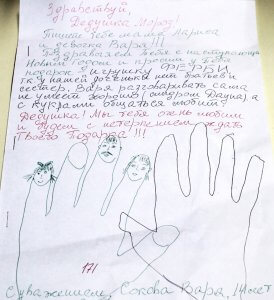 Здравствуй,
Дедушка Мороз!
Пишут Тебе мама Лариса
и девочка Вара!!!
Поздравляем Тебя с наступающим
Новым Годом и просим у Тебя
подарок: игрушку ФЁРБИ,
т.к у нашей доченьки нет братьев и
сестёр, Варя разговаривать сама
не умеет хорошо (синдром Дауна) а
с куклами общаться любит!
Дедушка! Мы тебя очень любим
и будем с нетерпением ждать
Твоего Подарка!!!
171
С уважением, Сокова Вара, 14 лет